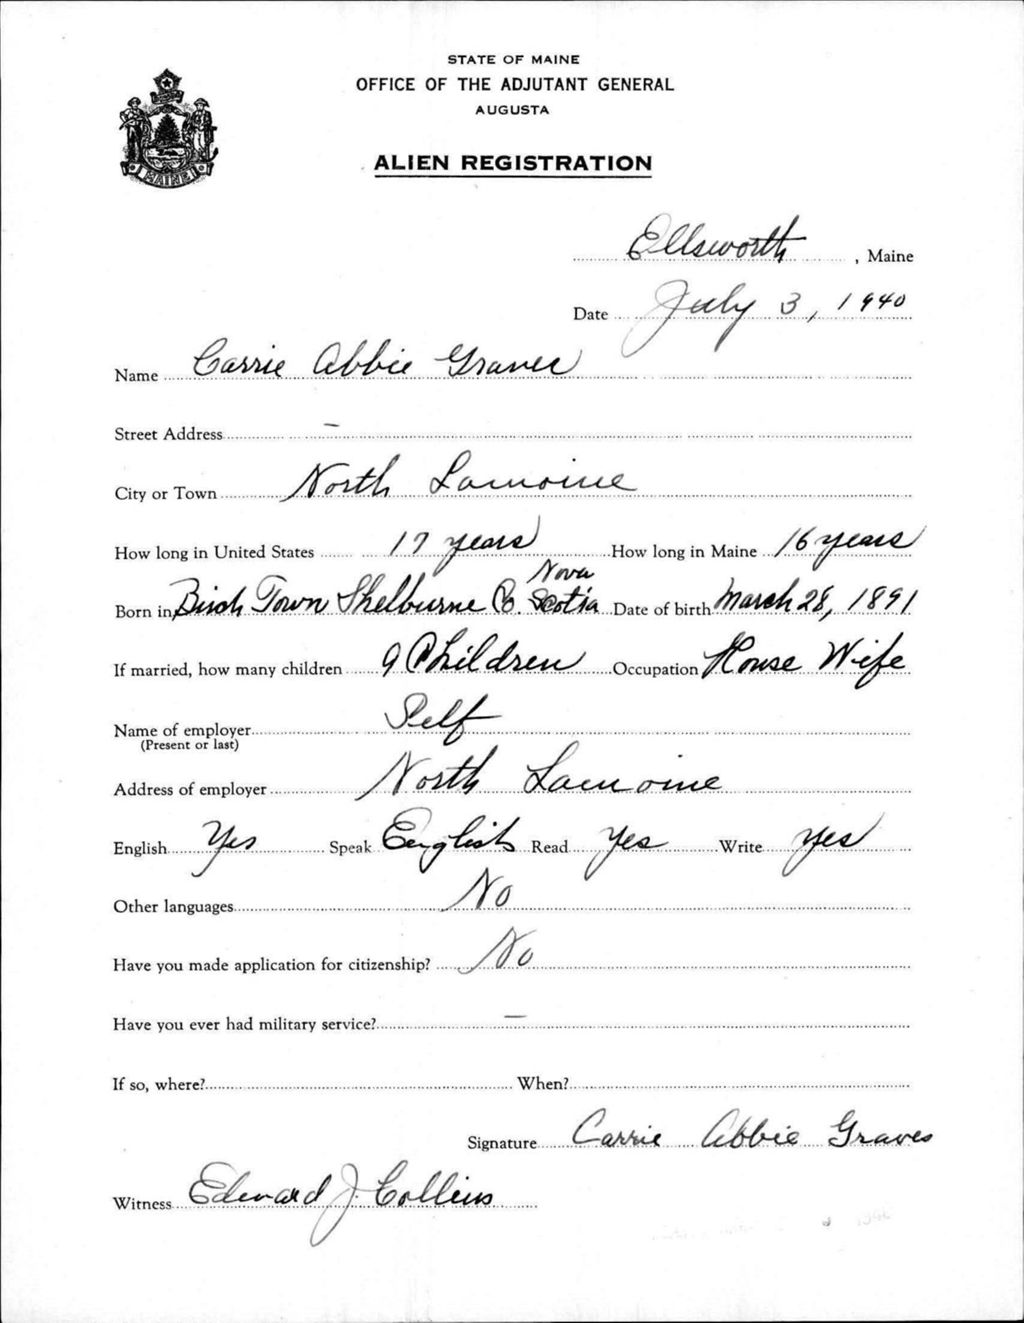 STATE OF MAINE
OFFICE OF THE ADJUTANT GENERAL
AUGUSTA
ALIEN REGISTRATION
MAINE
Ellsworth, Maine
Date July 3, 1940
Name Carrie Abbie Graves
Street Address –
City or Town North Lamoine
How long in United States 17 years How long in Maine 16 years
Born in Birch Town Shelburne Co. Nova Scotia Date of birth March 28, 1891
If married, how many children 9 Children Occupation House Wife
Name of employer Self
(Present or last)
Address of employer North Lamoine
English Yes Speak English Read Yes Write Yes
Other languages No
Have you made application for citizenship? No
Have you ever had military service? –
If so, where? When?
Signature Carrie Abbie Graves
Witness Edward J. Collins